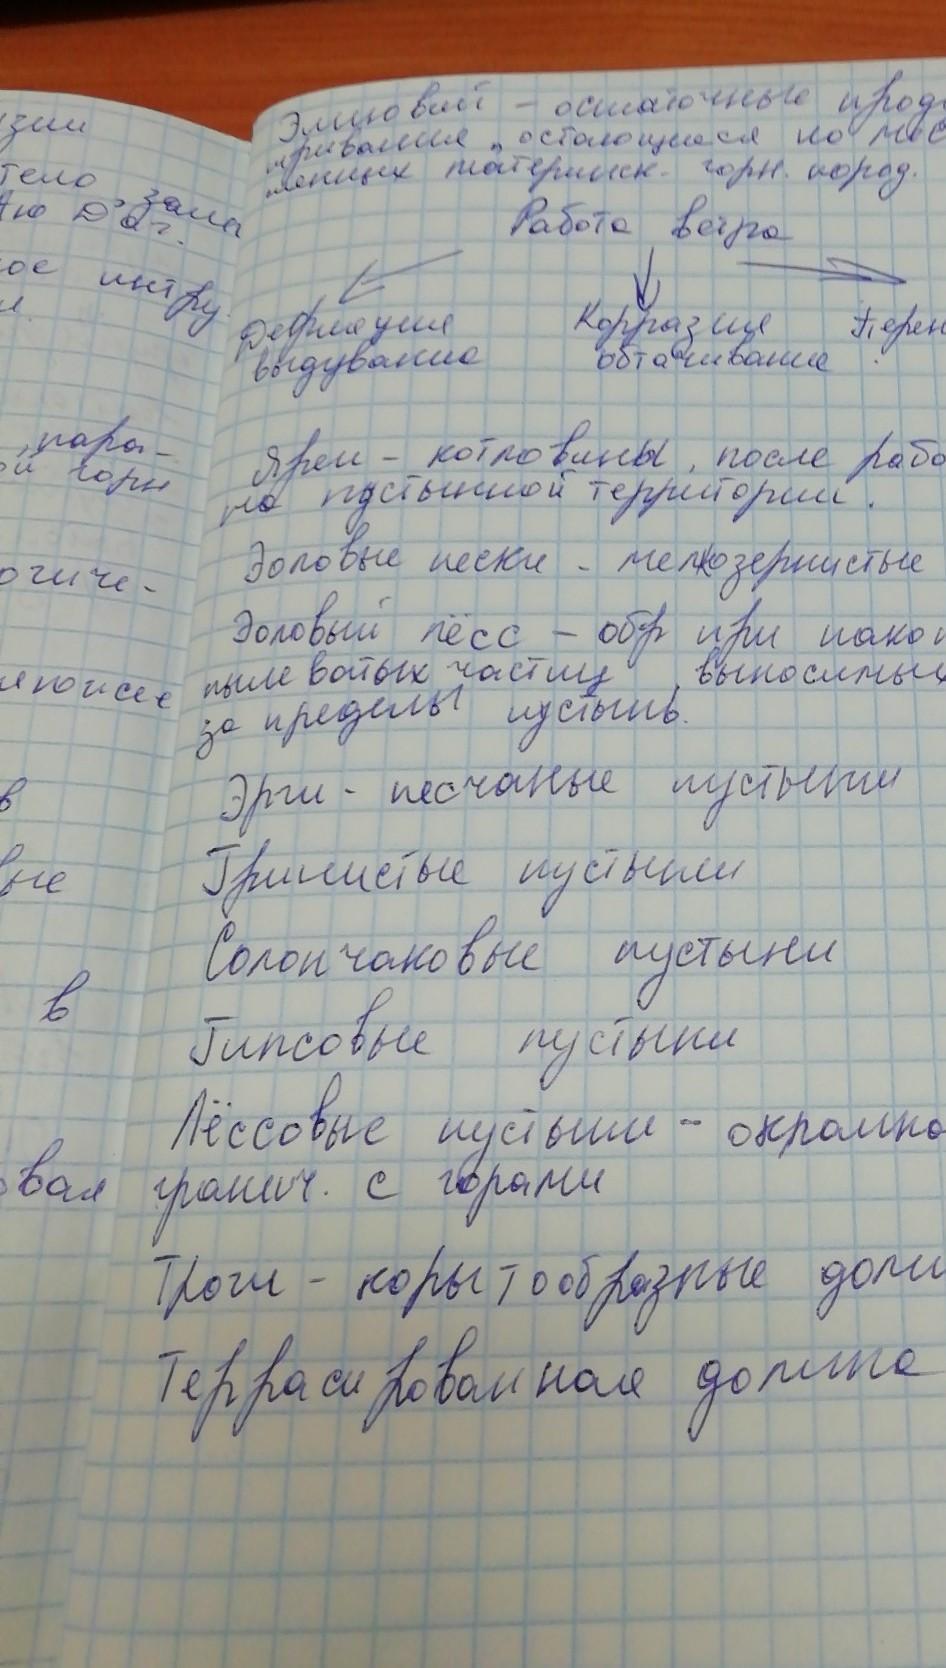 зии
тело
зала
ое интру
пара-
ой горн
огиче-
в
вые
в
овая
Элювий - остаточные прод
тривания, остающиеся на мес
материнск. горн. пород.
Работа ветра
Дефляция Корразия Перен
выдувание обтачивание
Ярги - котловины, после рабо
на пустынной территории.
Эоловые пески - мелкозернистые
Эоловый лёсс - обр при накоп
пылеватых частиц, выносимых
за пределы пустынь.
Эрги - песчаные пустыни
Глинистые пустыни
Солончаковые пустыни
Гипсовые пустыни
Лёссовые пустыни - окраинно
гранич. с горами
Троги - корытообразные доли
Террасированная долина